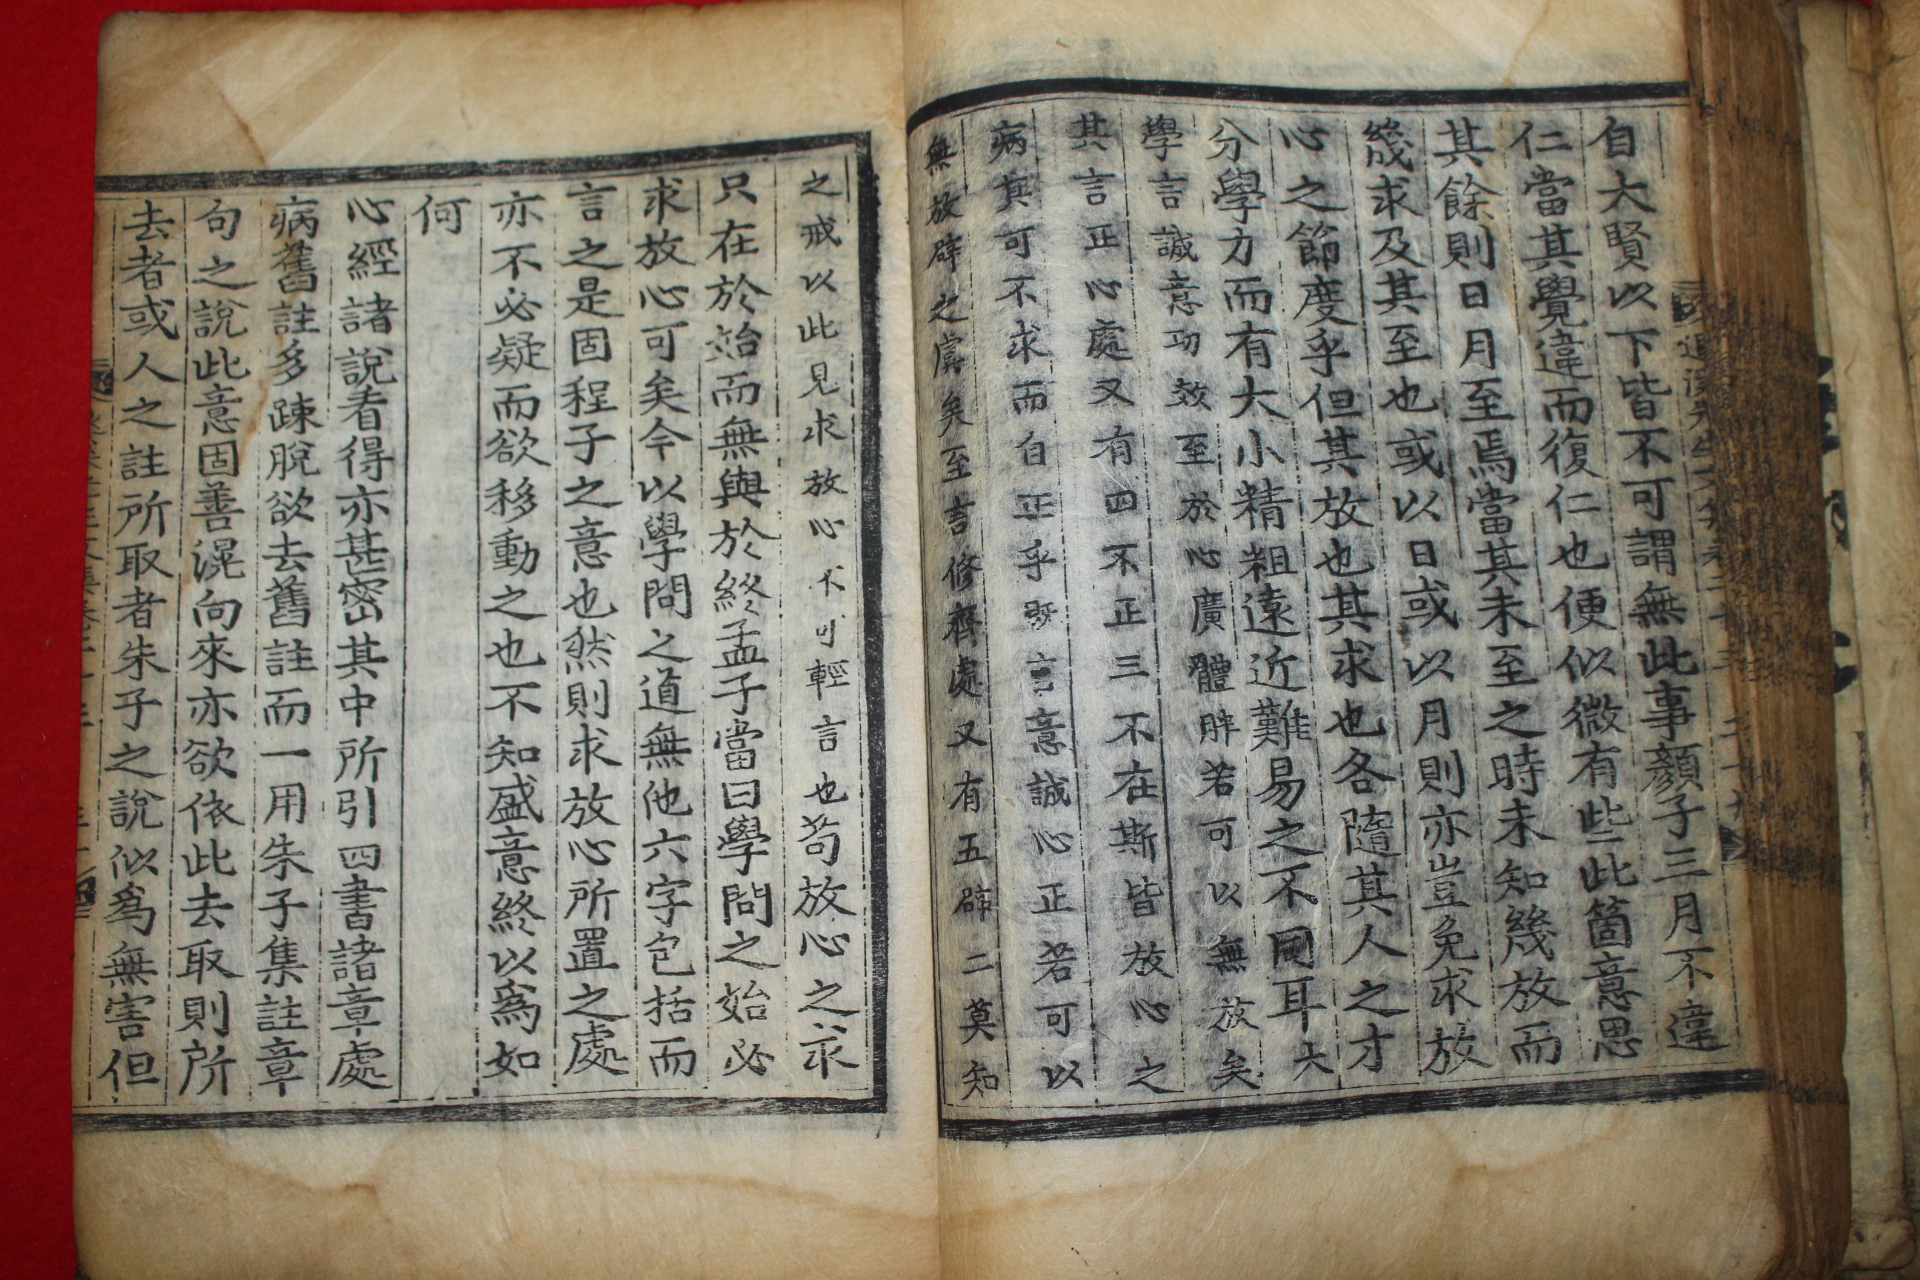 自大賢以下皆不可謂無此事顔子三月不違
仁當其覺違而復仁也便似微有些此箇意思
其餘則日月至焉當其未至之時未知幾放而
幾求及其至也或以日或以月則亦豈免求放
心之節度乎但其放也其求也各隨其人之才
分學力而有大小精粗遠近難易之不同耳大
學言誠意功效至於心廣體胖若可以無放矣
其言正心處又有四不正三不在斯皆放心之
病其可不求而自正乎旣言意誠心正若可以
無放辟之虞矣至言修齊處又有五辟二莫知
之戒以此見求放心不可輕言也苟放心之求
只在於始而無與於終孟子當曰學問之始必
求放心可矣今以學問之道無他六字包括而
言之是固程子之意也然則求放心所置之處
亦不必疑而欲移動之也不知盛意終以爲如
何
心經諸說看得亦甚密其中所引四書諸章處
病舊註多踈脫欲去舊註而一用朱子集註章
句之說此意固善滉向來亦欲依此去取則所
去者或人之註所取者朱子之說似爲無害但